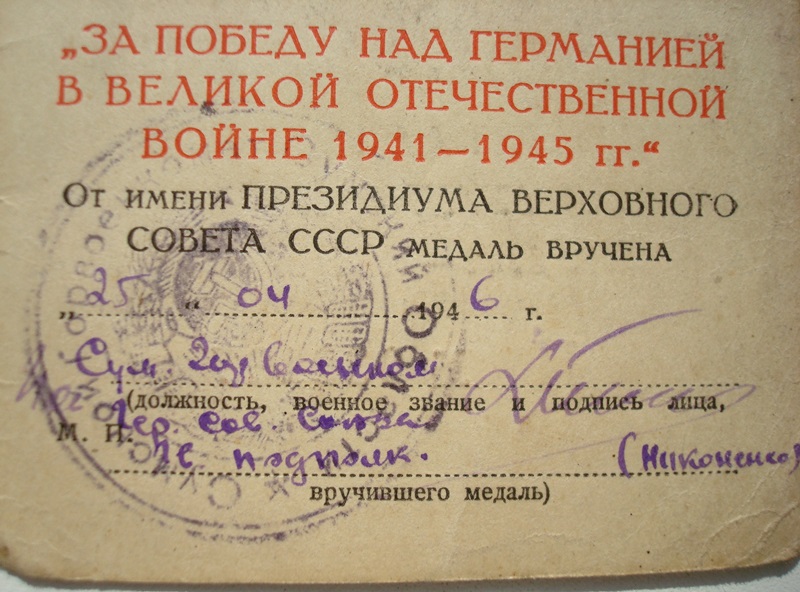 „ЗА ПОБЕДУ НАД ГЕРМАНИЕЙ
В ВЕЛИКОЙ ОТЕЧЕСТВЕННОЙ
ВОЙНЕ 1941—1945 гг.“
От имени ПРЕЗИДИУМА ВЕРХОВНОГО
СОВЕТА СССР МЕДАЛЬ ВРУЧЕНА
„25“ 04 1946 г.
Сум. Гор
(должность, военное звание и подпись лица,
М. П. Гер. Сов. Союза
подполк. (Никоненко)
вручившего медаль)